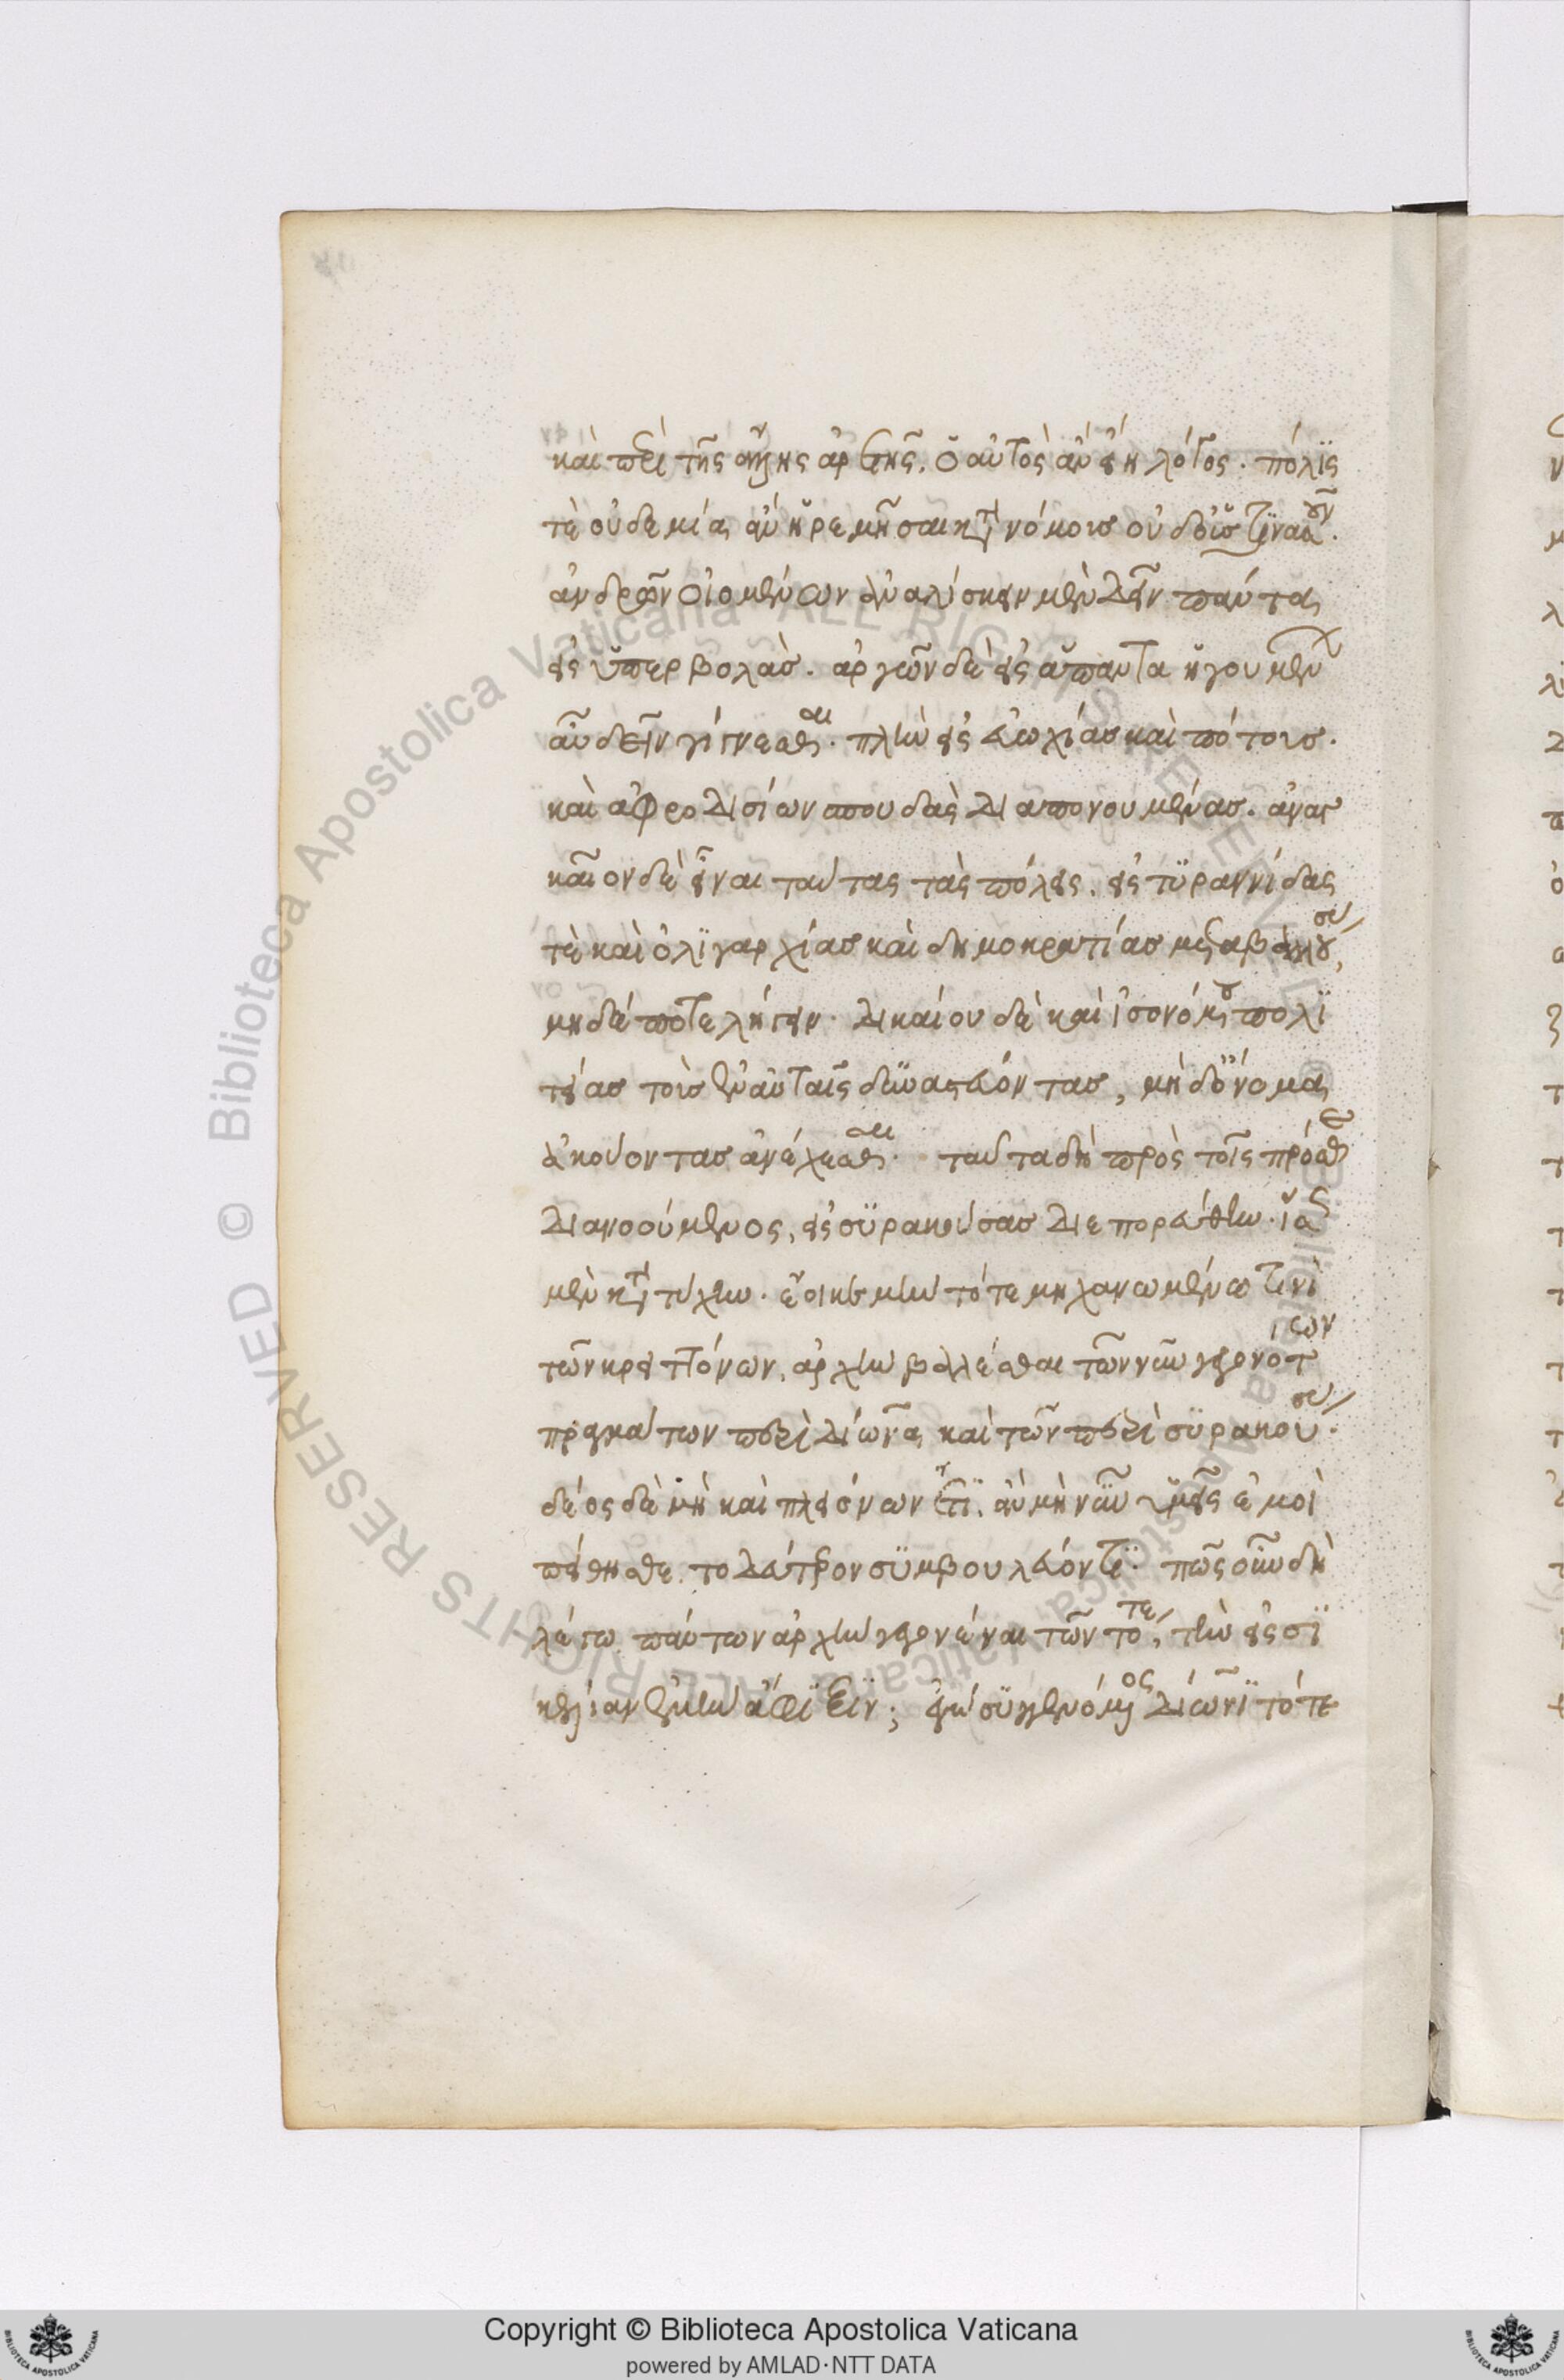 καὶ περὶ τῆς ἄλλης ἀρετῆς. ὁ αὐτὸς ἂν εἴη λόγος. πόλις
τὲ οὐδεμία ἂν ἠρεμῆσαι κατὰ νόμους οὐδ' οὑστιναοῦν.
ἀνδρῶν οἰομένων ἀναλίσκειν μὲν δεῖν πάντα
εἰς ὑπερβολάς. ἀργῶν δὲ εἰς ἅπαντα ἡγουμένων
αὖ δεῖν γίγνεσθαι. πλὴν εἰς εὐωχίας καὶ πότους.
καὶ ἀφροδισίων σπουδὰς διαπονουμένας. ἀναγ
καῖον δὲ εἶναι ταύτας τὰς πόλεις. εἰς τυραννίδας
τὲ καὶ ὀλιγαρχίας καὶ δημοκρατίας μεταβαλλούσας,
μηδέποτε λήγειν. δικαίου δὲ καὶ ἰσονόμου πολι
τείας τοὺς ἐν αὐταῖς δυναστεύοντας, μηδ' ὄνομα
ἀκούοντας ἀνέχεσθαι. ταῦτα δὴ πρὸς τοῖς πρόσθε
διανοούμενος, εἰς συρακούσας διεπορεύθην. ἴσως
μὲν κατὰ τύχην. ἔοικε μὴν τότε μηχανωμένω τινὶ
τῶν κρειττόνων. ἀρχὴν βαλέσθαι τῶν νῦν γεγονότων
πραγμάτων περὶ δίωνα καὶ τῶν περὶ συρακούσας.
δέος δὲ μὴ καὶ πλειόνων ἔτι. ἂν μὴ νῦν ὑμεῖς ἐμοὶ
πείθησθε. τὸ δεύτερον συμβουλεύοντι. πῶς οὖν δὴ
λέγω πάντων ἀρχὴν γεγονέναι τῶν τότε, τὴν εἰς σι
κελίαν ἐμὴν ἄφιξιν; ἐγὼ συγγενόμενος δίωνι τότε
Copyright © Biblioteca Apostolica Vaticana
powered by AMLAD·NTT DATA